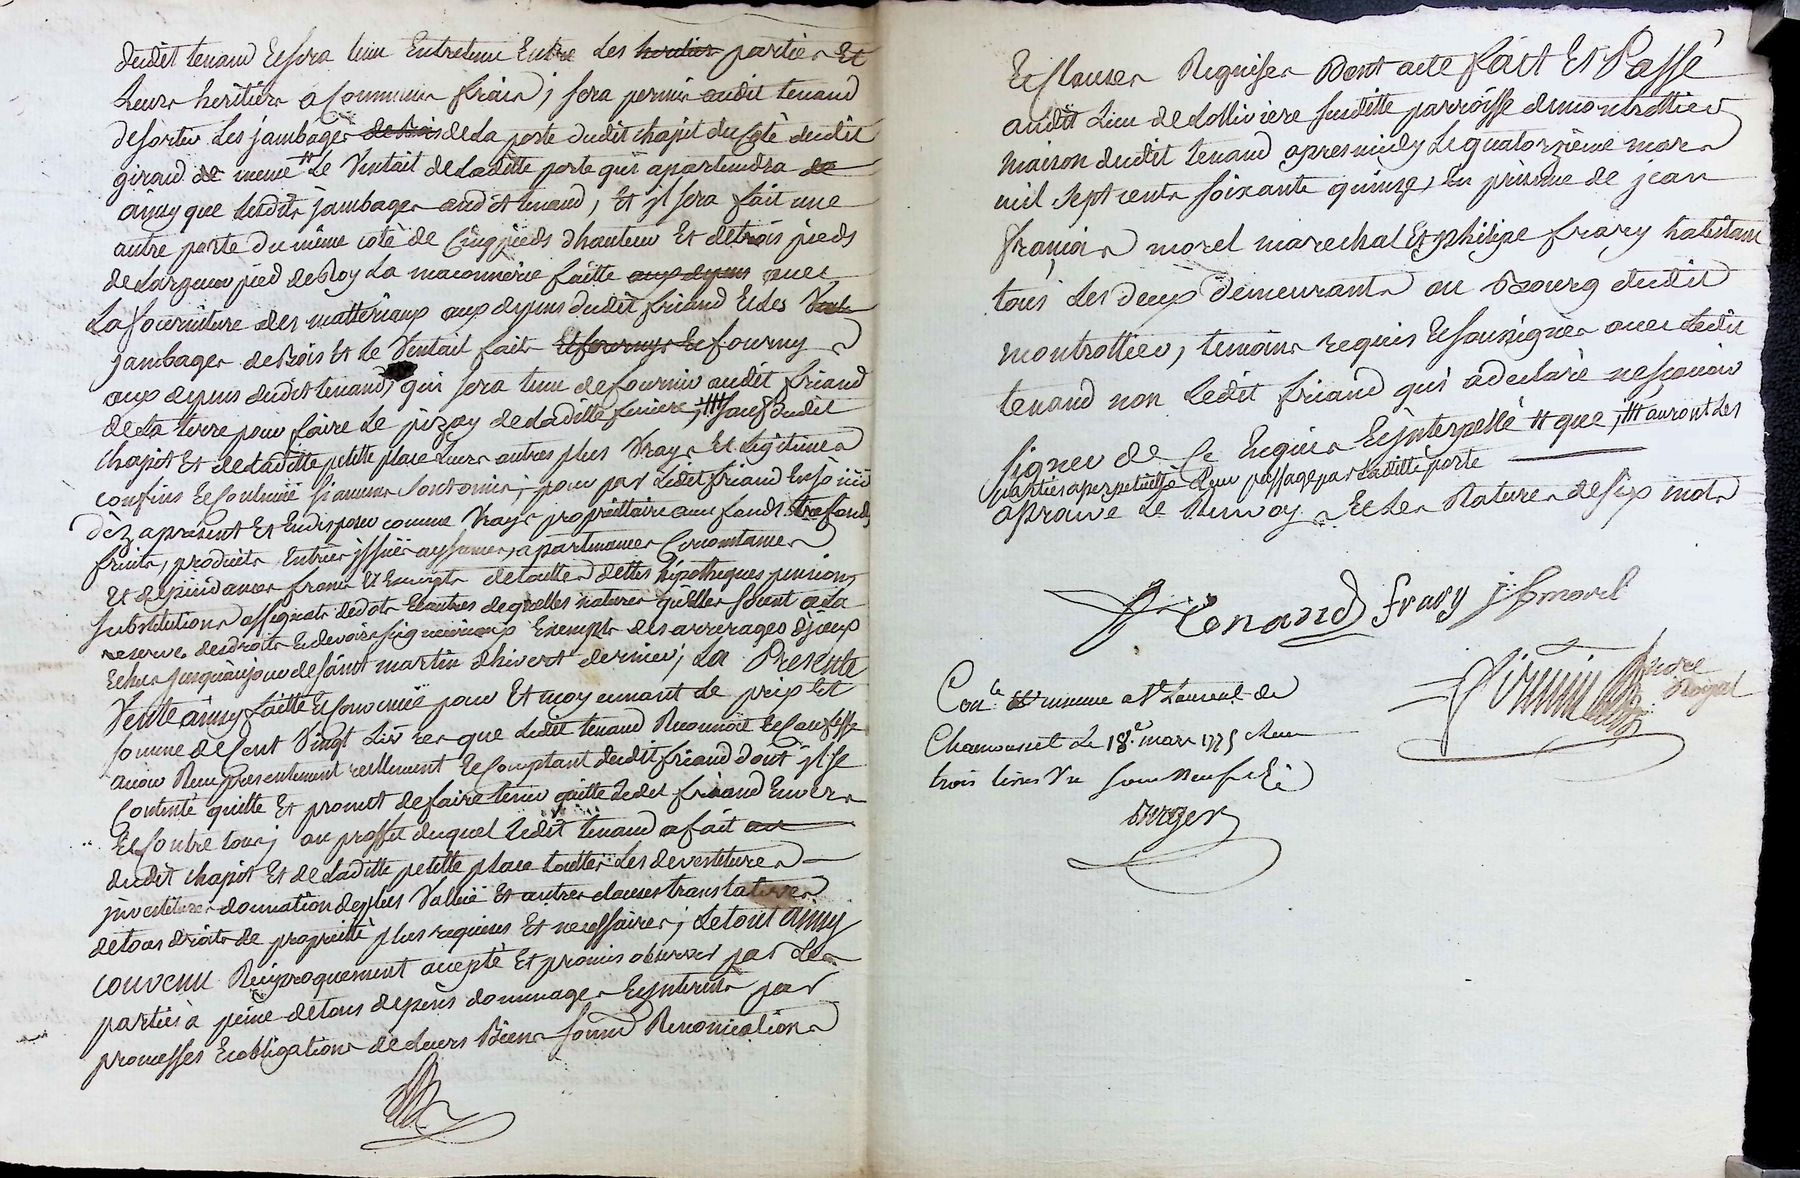 dudit tenand Et sera tenu Entretenu Entre Les heritiers parties Et
Leurs heritiers a Communs frais; sera permis audit tenand
de sortir Les jambages de Bois de La porte dudit chapit du Coté dudit
giraud de meme # Le Ventail de Laditte porte qui apartiendra
ainsy que lesdits jambages audit tenand, Et jl sera fait une
autre porte du même coté de Cinq pieds d'hauteur Et de trois pieds
de Largeur pied de Roy La maconnerie faitte aux depens avec
La fourniture des matteriaux aux depens dudit friand Et Les
jambages de Bois Et le Ventail faits Et fournys Et fourny
aux depens dudit tenand, qui sera tenu de fournir audit friand
de La terre pour faire Le pizay de Laditte #### sauf dudit
chapit Et de Laditte petitte place Leurs autres plus Vrays Et Legitimes
confins Et Contenüe si aucuns sont omis; pour par Ledit friand En joüir
dèz apresent Et En disposer comme Vray propriettaire aux fonds trefonds
fruits, produits, Entrées jssües aysances, apartenances Circonstances
Et dependances francs Et Exempts de touttes dettes hipotheques pensions
substitutions assignats de dots Et autres de quelles natures qu'Elles soient a La
reserve des droits Et devoirs seigneuriaux Exempts des arrerages d'jceux
Echus jusqu'aujour de saint martin d'hivert dernier; La Presente
Vente ainsy faitte Et Convenüe pour Et moyennant Le prix Et
somme de Cent Vingt Livres que Ledit tenand Reconnoit Et Confesse
avoir Reçu presentement reellement Et Comptant dudit friand dont jl se
Contente quitte Et promet de faire tenir quitte Ledit friand Envers
Et Contre tous; au proffit duquel Ledit tenand a fait
dudit chapit Et de Laditte petitte place touttes Les devestitures
jnvestitures donnation de plus Vallüe Et autres clauses translatives
de tous droits de proprietté plus requises Et necessaires; Le tout ainsy
convenu Reciproquement accepté Et promis observer par Les
parties à peine de tous depens dommages Et jnterets par
promesses Et obligations de Leurs Biens soumis Renonciations
Et Clauses Requises Dont acte fait Et Passé
audit Lieu de Lollivière susditte parroisse de montrottier
maison dudit tenand apres midy Le quatorzième mars
mil sept cents soixante quinze, En presence de jean
françois morel marechal Et philipe frary habitants
tous Les deux demeurants au Bourg dudit
montrottier, temoins requis Et soussignés avec Ledit
tenand non Ledit friand qui a declaré ne sçavoir
signer de Ce Enquis Et jnterpellé # que ### auront Les
parties a perpetuitté Leur passage par Laditte porte
aprouvé Le Renvoy Et Les Ratures de six mots
Tenand frary j f morel
Con.le Et insinué a St Laurent de
Chamousset Le 18e mars 1775 Reçu
trois livres Un sous neuf d.